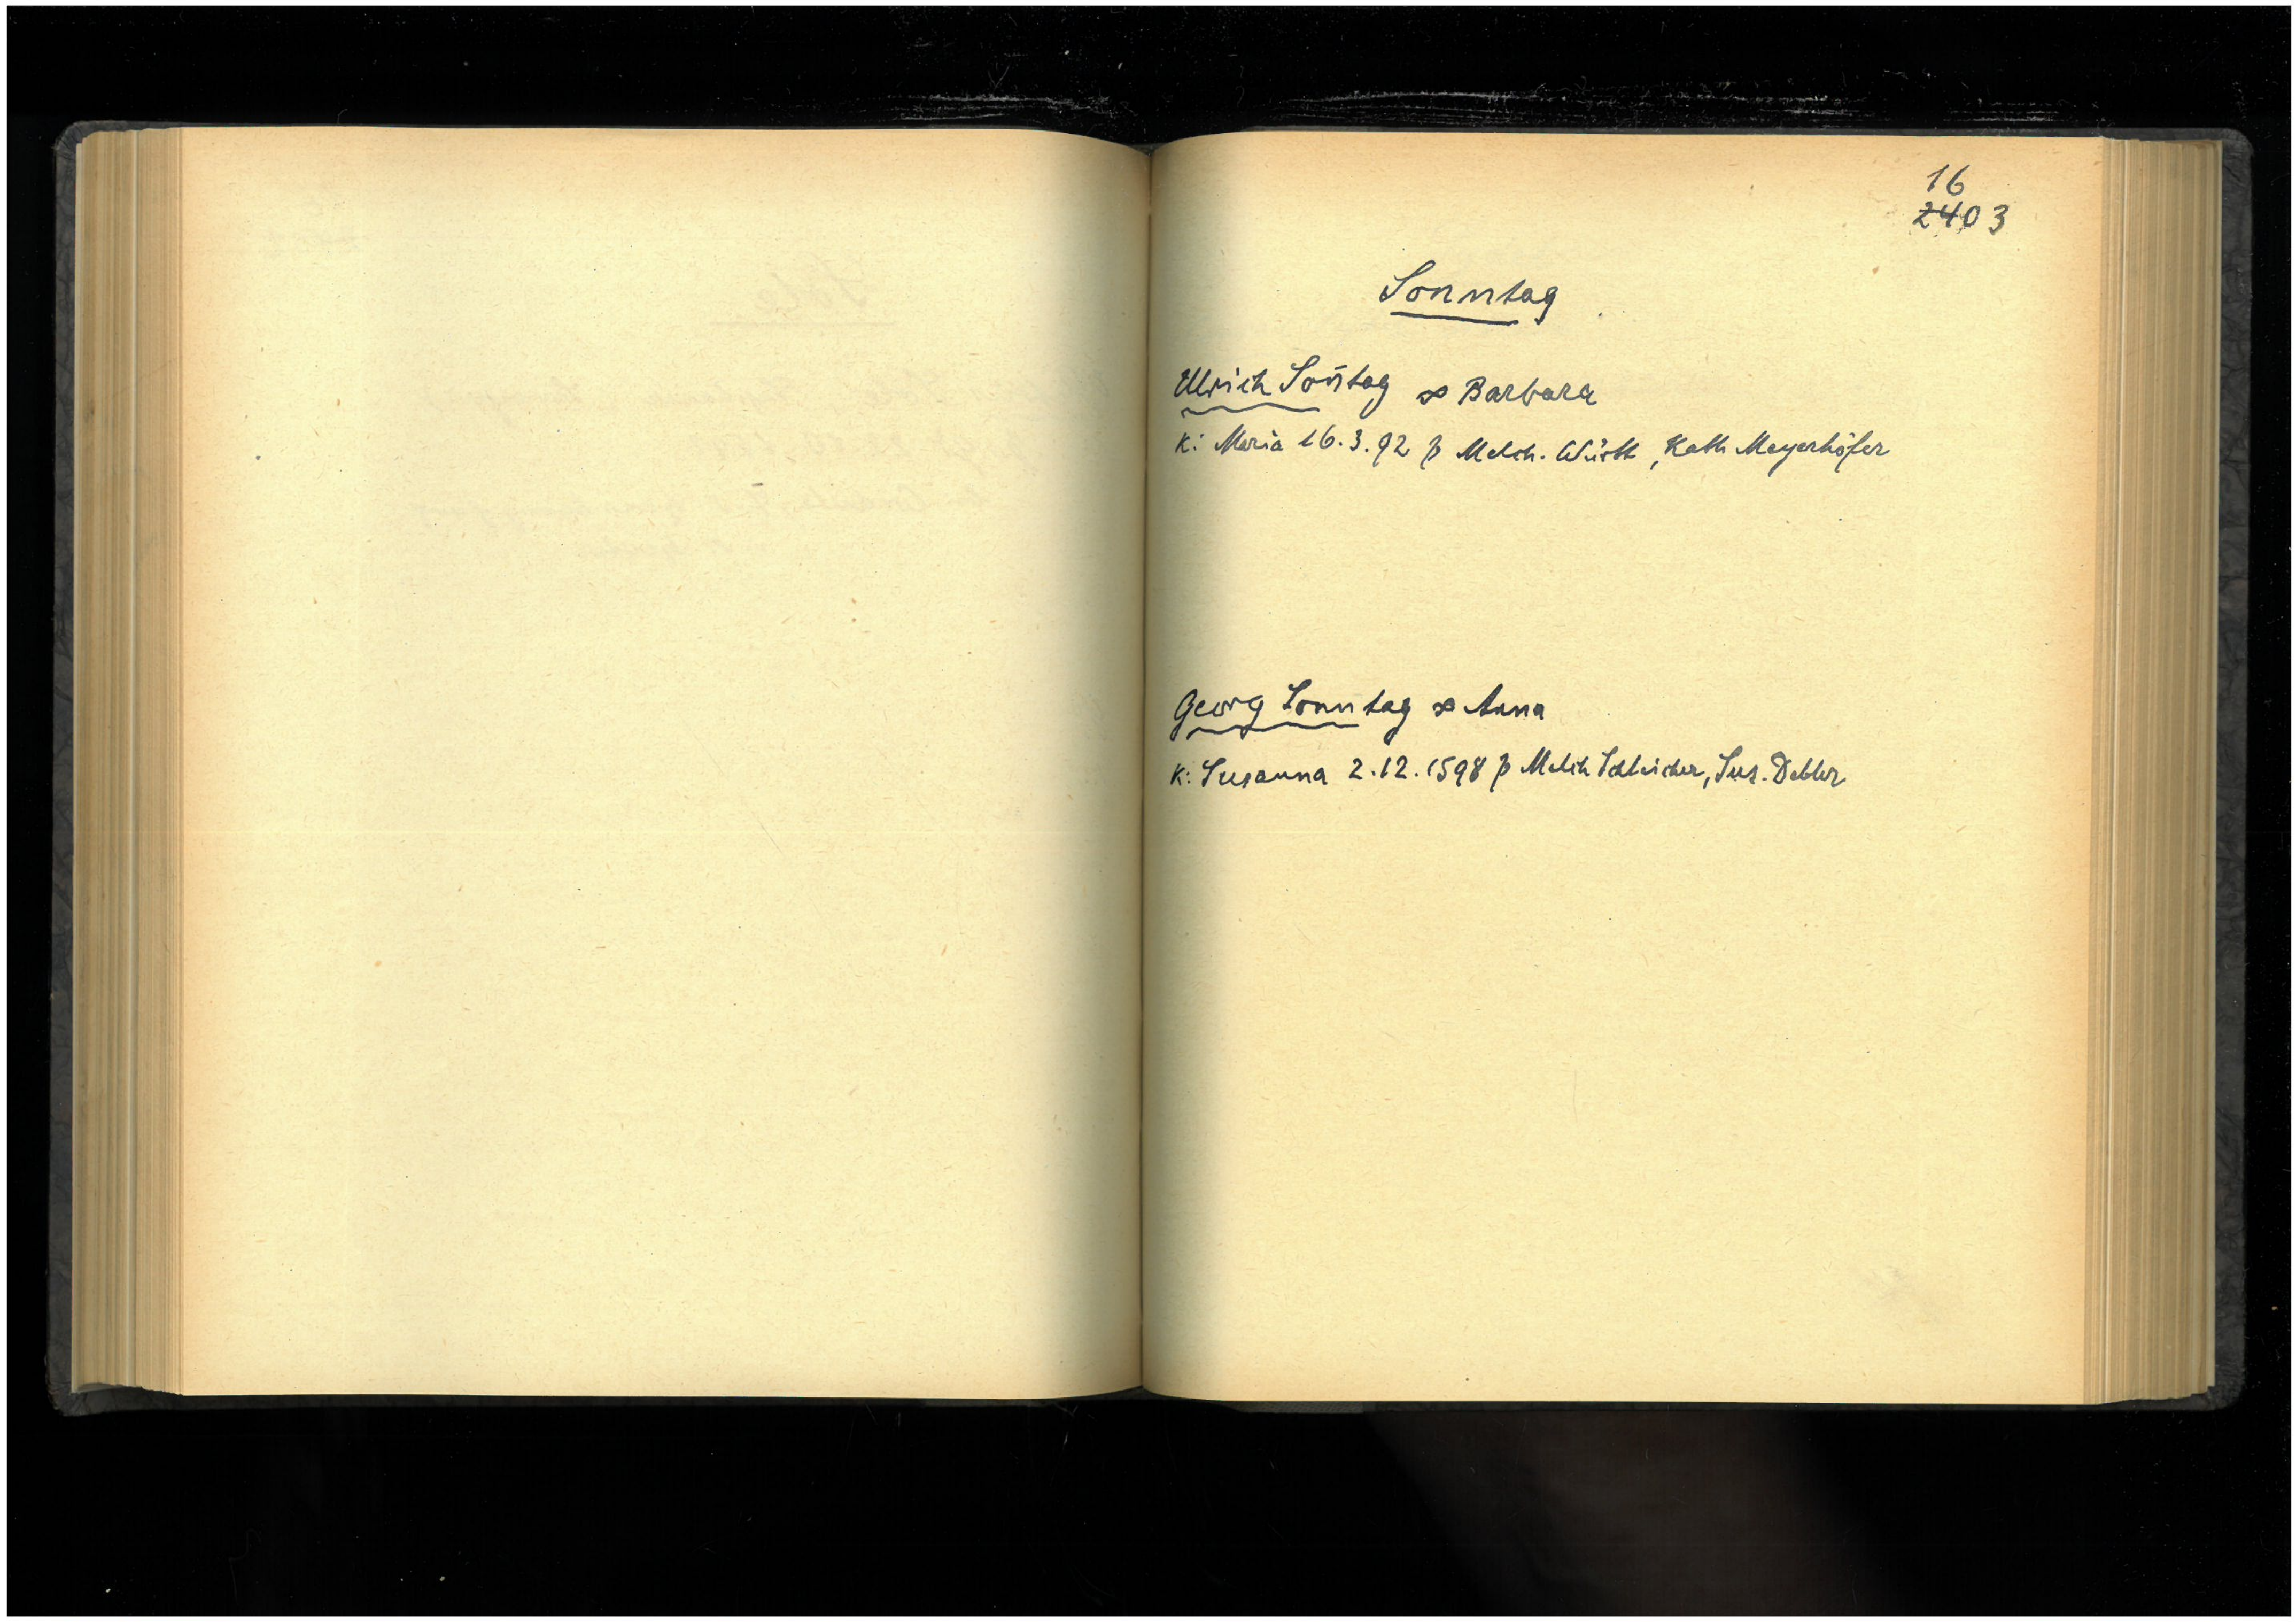 16
2403
Sonntag
Ulrich Son̄tag ∞ Barbara
K: Maria 16.3.92 p Melch. Württ, Kath Mayerhöfer
Georg Sonntag ∞ Anna
K: Susanna 2.12.1598 p Melch Schleicher, Sus. Debler